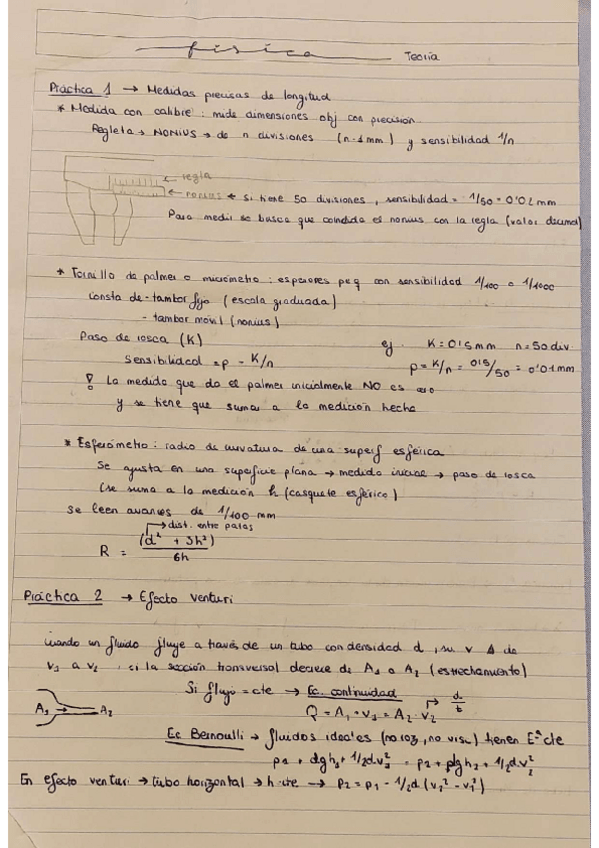 física Teoría
Práctica 1 → Medidas precisas de longitud
* Medida con calibre: mide dimensiones obj con precisión
Regleta → NONIUS → de n divisiones (n-1 mm) y sensibilidad 1/n
← regla
← nonius ← si tiene 50 divisiones, sensibilidad = 1/50 = 0'02 mm
Para medir se busca que coincida el nonius con la regla (valor decimal)
* Tornillo de palmer o micrómetro: espesores peq con sensibilidad 1/100 o 1/1000
Consta de - tambor fijo (escala graduada)
- tambor móvil (nonius)
Paso de rosca (K) ej K = 0'5 mm n = 50 div.
Sensibilidad = p = K/n p = K/n = 0'5/50 = 0'01 mm
! La medida que da el palmer inicialmente NO es cero
y se tiene que sumar a la medición hecha
* Esferómetro: radio de curvatura de una superf esférica
Se ajusta en una superficie plana → medida inicial → paso de rosca
(se suma a la medición h (casquete esférico)
Se leen avances de 1/100 mm
→ dist. entre patas
R = (d² + 3h²)/6h
Práctica 2 → Efecto venturi
cuando un fluido fluye a través de un tubo con densidad d, su v Δ de
v1 a v2, si la sección transversal decrece de A1 a A2 (estrechamiento)
Si flujo = cte → Ec. continuidad
A1 → A2 Q = A1 · v1 = A2 · v2
Ec Bernoulli → fluidos ideales (no roz, no visc) tienen Eª cte
p1 + dgh1 + 1/2d.v1² = p2 + dgh2 + 1/2d.v2²
En efecto venturi → tubo horizontal → h cte → p2 = p1 - 1/2d (v2² - v1²)